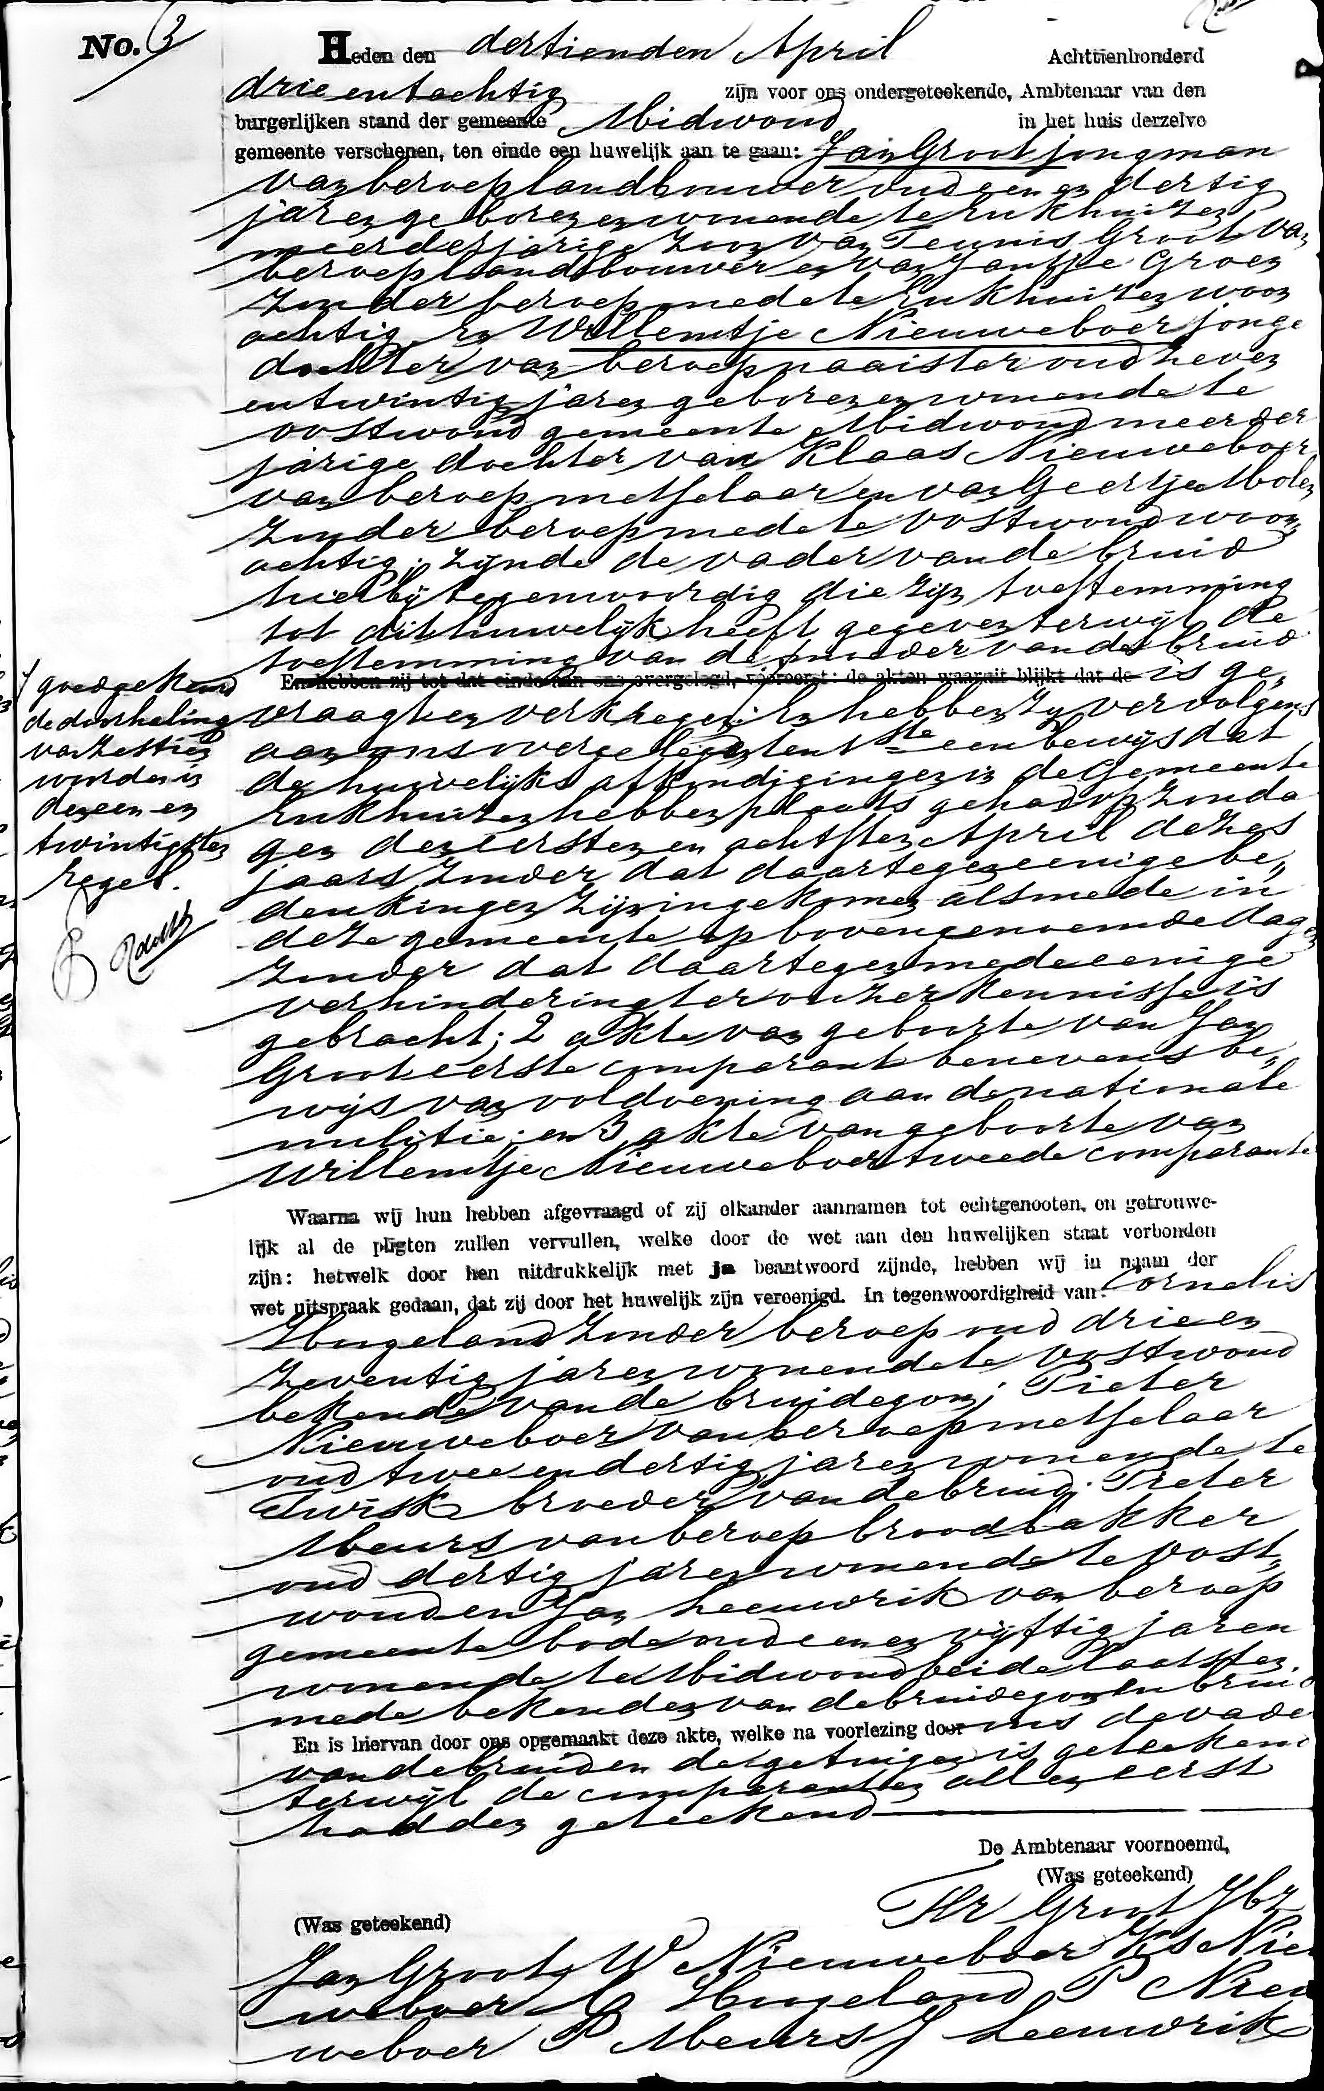 No. 3
Heden den dertienden April Achttienhonderd
drie en tachtig zijn voor ons ondergeteekende, Ambtenaar van den
burgerlijken stand der gemeente Midwoud in het huis derzelve
gemeente verschenen, ten einde een huwelijk aan te gaan: Jan Groot jongman
van beroep landbouwer oud een en dertig
jaren geboren en wonende te Enkhuizen
meerderjarige zoon van Teunis Groot van
beroep landbouwer en van Jantje Groen
zonder beroep mede te Enkhuizen woon
achtig. En Willemtje Nieuweboer jonge
dochter van beroep naaister oud zeven
en twintig jaren geboren en wonende te
Oostwoud gemeente Midwoud meerder
jarige dochter van Klaas Nieuweboer
van beroep metselaar en van Geertje Molen
zonder beroep mede te Oostwoud woon
achtig; zijnde de vader van de bruid
hierbij tegenwoordig die zijn toestemming
tot dit huwelijk heeft gegeven terwijl de
toestemming van de moeder van de bruid
En hebben zij tot dat einde aan ons overgelegd, vooreerst: de akten waaruit blijkt dat de is ge„
vraagt en verkregen. En hebben zij vervolgens
aan ons overgelegd ten 1ste een bewijs dat
de huwelijks afkondigingen in de Gemeente
Enkhuizen hebben plaats gehad op zonda
gen den eersten en achtsten April dezes
jaars zonder dat daartegen eenige be„
denkingen zijn ingekomen alsmede in
deze gemeente op bovengenoemde dagen
zonder dat daartegen mede eenige
verhindering ter onzer kennisse is
gebracht; 2 akte van geboorte van Jan
Groot eerste comparant benevens be„
wijs van voldoening aan de nationale
militie; en 3 akte van geboorte van
Willemtje Nieuweboer tweede comparante
goedgekeurd
de doorhaling
van zestien
woorden in
den een en
twintigsten
regel.
Waarna wij hun hebben afgevraagd of zij elkander aannamen tot echtgenooten, en getrouwe-
lijk al de pligten zullen vervullen, welke door de wet aan den huwelijken staat verbonden
zijn: hetwelk door hen uitdrukkelijk met ja beantwoord zijnde, hebben wij in naam der
wet uitspraak gedaan, dat zij door het huwelijk zijn vereenigd. In tegenwoordigheid van: Cornelis
Hoogeland zonder beroep oud drie en
zeventig jaren wonende te Oostwoud
bekende van de bruidegom; Pieter
Nieuweboer van beroep metselaar
oud twee en dertig jaren wonende te
Twisk broeder van de bruid; Pieter
Meurs van beroep broodbakker
oud dertig jaren wonende te Oost„
woud en Jan Leeuwrik van beroep
gemeente bode oud een en vijftig jaren
wonende te Midwoud beide laatsten
mede bekenden van de bruidegom en bruid
En is hiervan door ons opgemaakt deze akte, welke na voorlezing door ons de vader
van de bruid en de getuigen is geteekend
terwijl de comparanten alleen eerst
hadden geteekend
De Ambtenaar voornoemd,
(Was geteekend)
Groot Jbz
(Was geteekend)
Jan Groot W Nieuweboer Ks Nie
weboer C Hoogeland P Nieu
weboer P Meurs J Leeuwrik